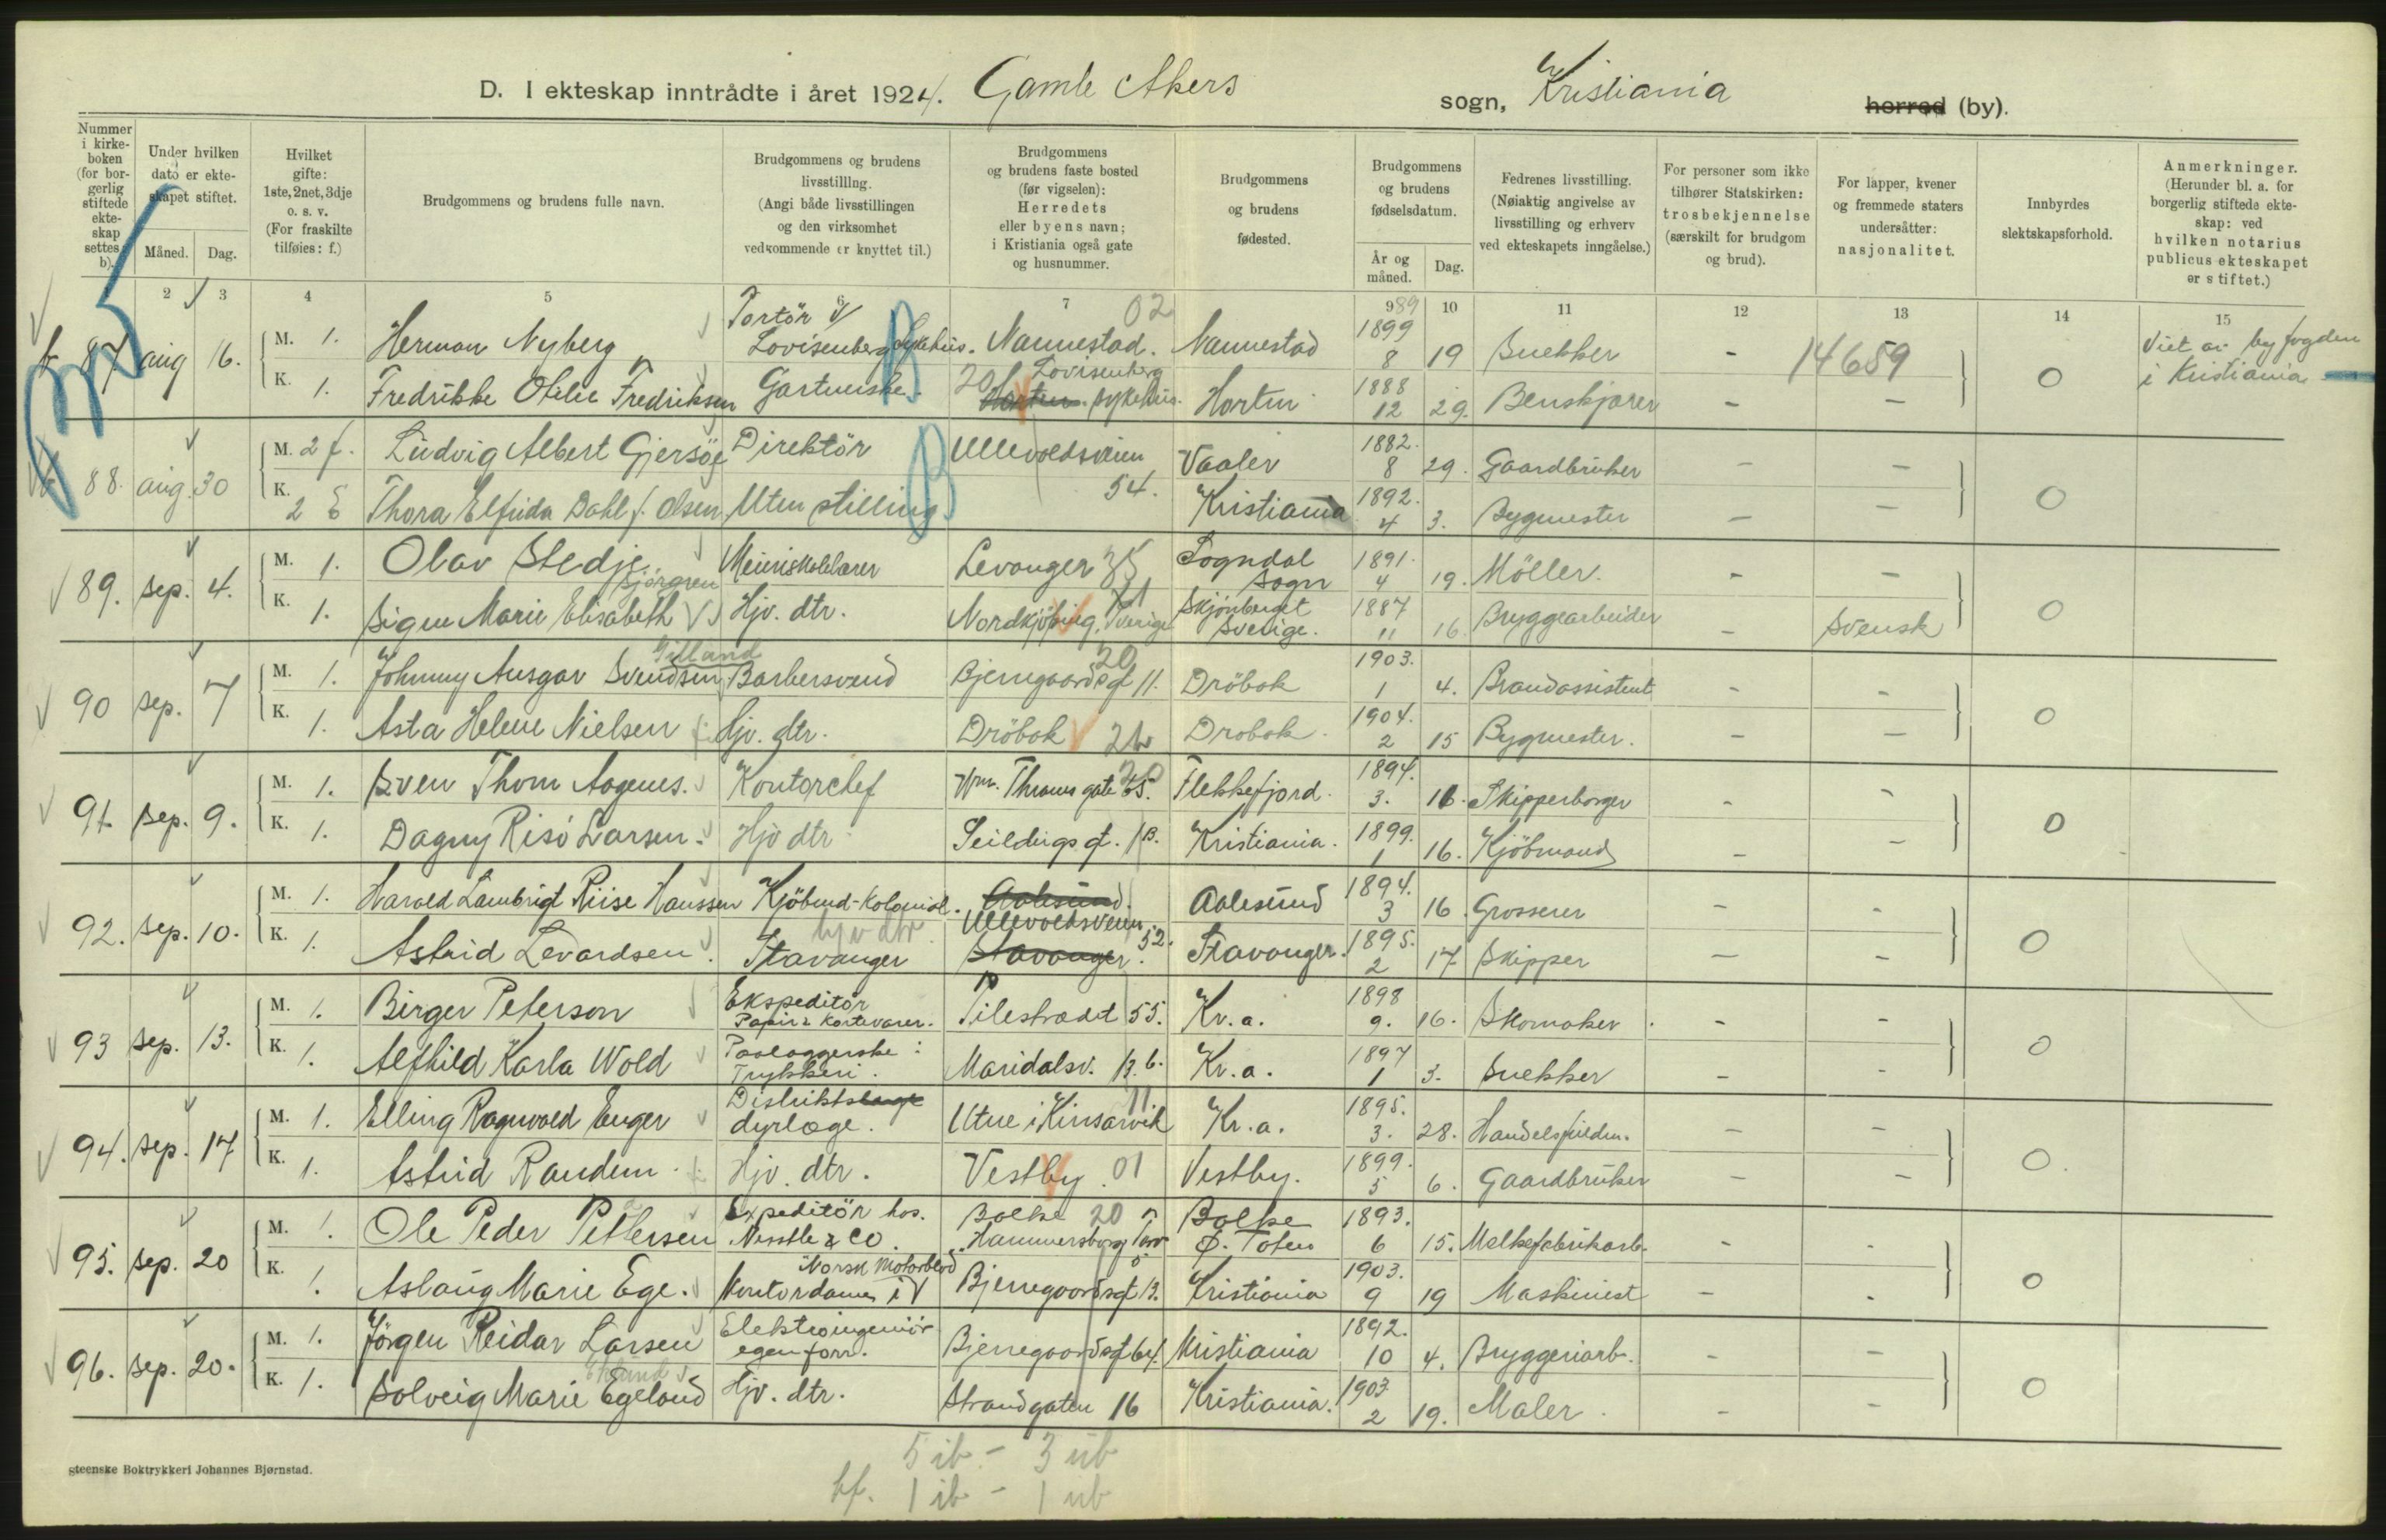 D. I ekteskap inntrådte i året 1924. Gamle Akers sogn, Kristiania herred (by).
Nummer i kirkeboken (for borgerlig stiftede ekteskap settes b).
Under hvilken dato er ekteskapet stiftet.
Måned. Dag.
Hvilket gifte: 1ste, 2net, 3dje o. s. v. (For fraskilte tilføies: f.)
Brudgommens og brudens fulle navn.
Brudgommens og brudens livsstilling. (Angi både livsstillingen og den virksomhet vedkommende er knyttet til.)
Brudgommens og brudens faste bosted (før vigselen): Herredets eller byens navn; i Kristiania også gate og husnummer.
Brudgommens og brudens fødested.
Brudgommens og brudens fødselsdatum.
År og måned. Dag.
Fedrenes livsstilling. (Nøiaktig angivelse av livsstilling og erhverv ved ekteskapets inngåelse.)
For personer som ikke tilhører Statskirken: trosbekjennelse (særskilt for brudgom og brud).
For lapper, kvener og fremmede staters undersåtter: nasjonalitet.
Innbyrdes slektskapsforhold.
Anmerkninger. (Herunder bl. a. for borgerlig stiftede ekteskap: ved hvilken notarius publicus ekteskapet er stiftet.)
2 3 4 5 6 7 9 10 11 12 13 14 15
b 87 aug 16. M. 1. Herman Nyberg Portör v/ Lovisenberg sykehus. Nannestad. 02 Nannestad 1899 89 8 19 Snekker - 14659 0 Viet av byfogden i Kristiania
K. 1. Fredrikke Otilie Fredriksen Gartnerske. 20 Horten. Lovisenberg sykehus. Horten 1888 12 29. Benskjærer - -
88. aug. 30 M. 2 f. Ludvig Albert Gjersöe Direktör Ullevoldsveien 54. Vaaler 1882. 8 29. Gaardbruker - - 0
K. 2 E Thora Elfrida Dahl f. Olsen Uten stilling Kristiania 1892. 4 3. Bygmester - -
89. sep. 4. M. 1. Olav Stedje Meieriskolelærer Levanger 35 Sogndal Sogn 1891. 4 19. Möller. - - 0
K. 1. Signe Marie Elisabeth Sjörgren Hjv. dtr. Nordkjöbing, Sverige 71 Skjönberget Sverige. 1887 11 16 Bryggearbeider - Svensk
90 sep. 7 M. 1. Johnny Ansgar Svendsen Gilland Barbersvend Bjerregaardsgt 11. 20 Dröbak 1903. 1 4. Brandassistent - - 0
K. 1. Asta Helene Nielsen Hjv. dtr. Dröbak 21 Drobak. 1904. 2 15 Bygmester. - -
91. sep. 9. M. 1. Sven Thom Aagenes. Kontorchef Wm. Thranes gate 65. 20 Flekkefjord. 1894. 3. 16. Skipperborger - - 0
K. 1. Dagny Risö Larsen. Hjv dtr. Seildugsgt. 1B. Kristiania. 1899. 1 16. Kjöbmand - -
92. sep. 10. M. 1. Harald Lambrigt Riise Hanssen Kjöbmd-Kolonial. Aalesund. Ullevoldsveien 52. Aalesund 1894. 3 16. Grosserer - - 0
K. 1. Astrid Levardsen. hjv dtr. Stavanger Stavanger. Stavanger. 1895. 2 17 Skipper - -
93 sep. 13. M. 1. Birger Peterson Ekspeditör Papir & Kortevarer. Pilestrædet 55. Kr.a. 1898 9. 16. Skomaker. - - 0
K. 1. Alfhild Karla Wold Paalæggerske i Trykkeri. Maridalsv. 13.b. Kr.a. 1897 1 3. Snekker - -
94. sep. 17 M. 1. Elling Ragnvald Enger Distriktslæge dyrlæge. Utne i Kinsarvik 11 Kr.a. 1895. 3. 28. Handelsfuldm. - - 0.
K. 1. Astrid Randem. Hjv. dtr. Vestby. 01 Vestby. 1899. 5 6. Gaardbruker - -
95. sep. 20 M. 1. Ole Peder Pettersen Expeditör hos. Nesstle & Co. Balke 20 Hammersborg Torv 5 Balke Ø. Toten 1893. 6 15. Melkefabrikarb. - - 0
K. 1. Aslaug Marie Ege. Kontordame i Norsk Motorblad Bjerregaardsgt 13. Kristiania 1903. 9 19 Maskinist - -
96. sep. 20. M. 1. Jörgen Reidar Larsen Elektroingeniör egen forr. Bjerregaardsgt 64. Kristiania 1892. 10 4. Bryggeriarb. - - 0
K. 1. Solveig Marie Egeland Hjv. dtr. Strandgaten 16 Kristiania. 1903 2 19. Maler. - -
5 ib - 3 ub
bf. 1 ib - 1 ub
Steenske Boktrykkeri Johannes Bjørnstad.